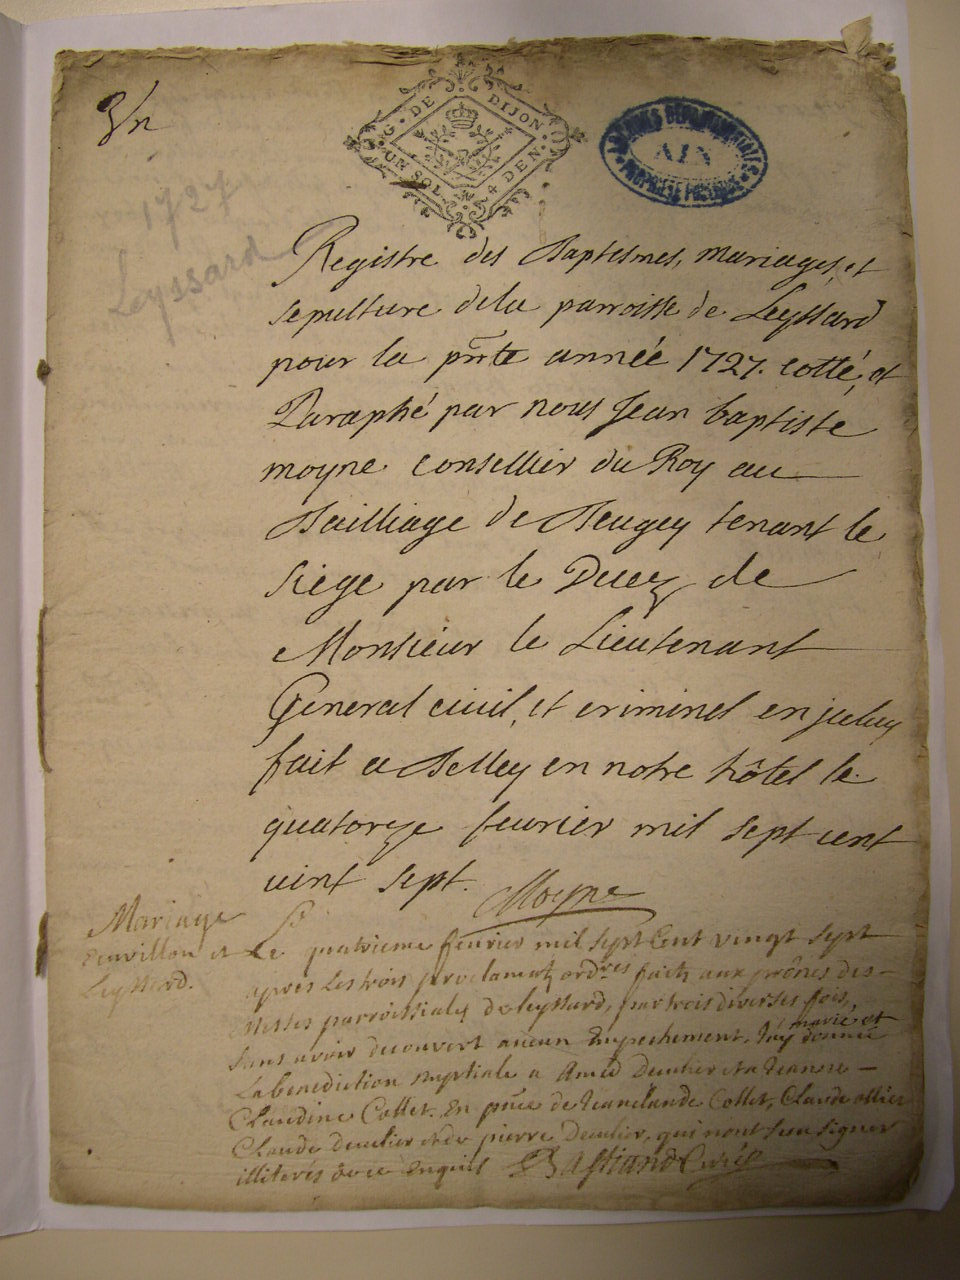 G. DE DIJON
UN SOL 4 DEN.
ARCHIVES DEPARTEMENTALES
AIN
PROPRIETE PUBLIQUE
1727
Leyssard
Registre des Baptesmes, mariages, et
sepulture dela parroisse de Leyssard
pour la pnte année 1727. cotté, et
Paraphé par nous Jean baptiste
moyne consellier du Roy au
Bailliage de Beugey tenant le
siege par le Decez de
Monsieur le Lieutenant
General civil, et criminel en jceluy
fait a Belley en notre hôtel le
quatorze feuvrier mil sept cent
vint sept. Moyne
Mariage
et
Leyssard.
Le quatrieme feuvrier mil sept Cent vingt sept
apres Les trois proclamatz ordres faitz aux prônes des
Messes parroissiales de leyssard, par trois diverses fois,
sans avoir decouvert aucun Empechement, J'ay marié et donné
La benediction nuptiale a Amed Decutier et a Jeanne
Claudine Collet. En pnce de Jeanclaude Collet, Claude ollier
Claude Decutier et de pierre Decutier, qui nont sceu signer
illiteres de ce Enquis Bastiand Curé